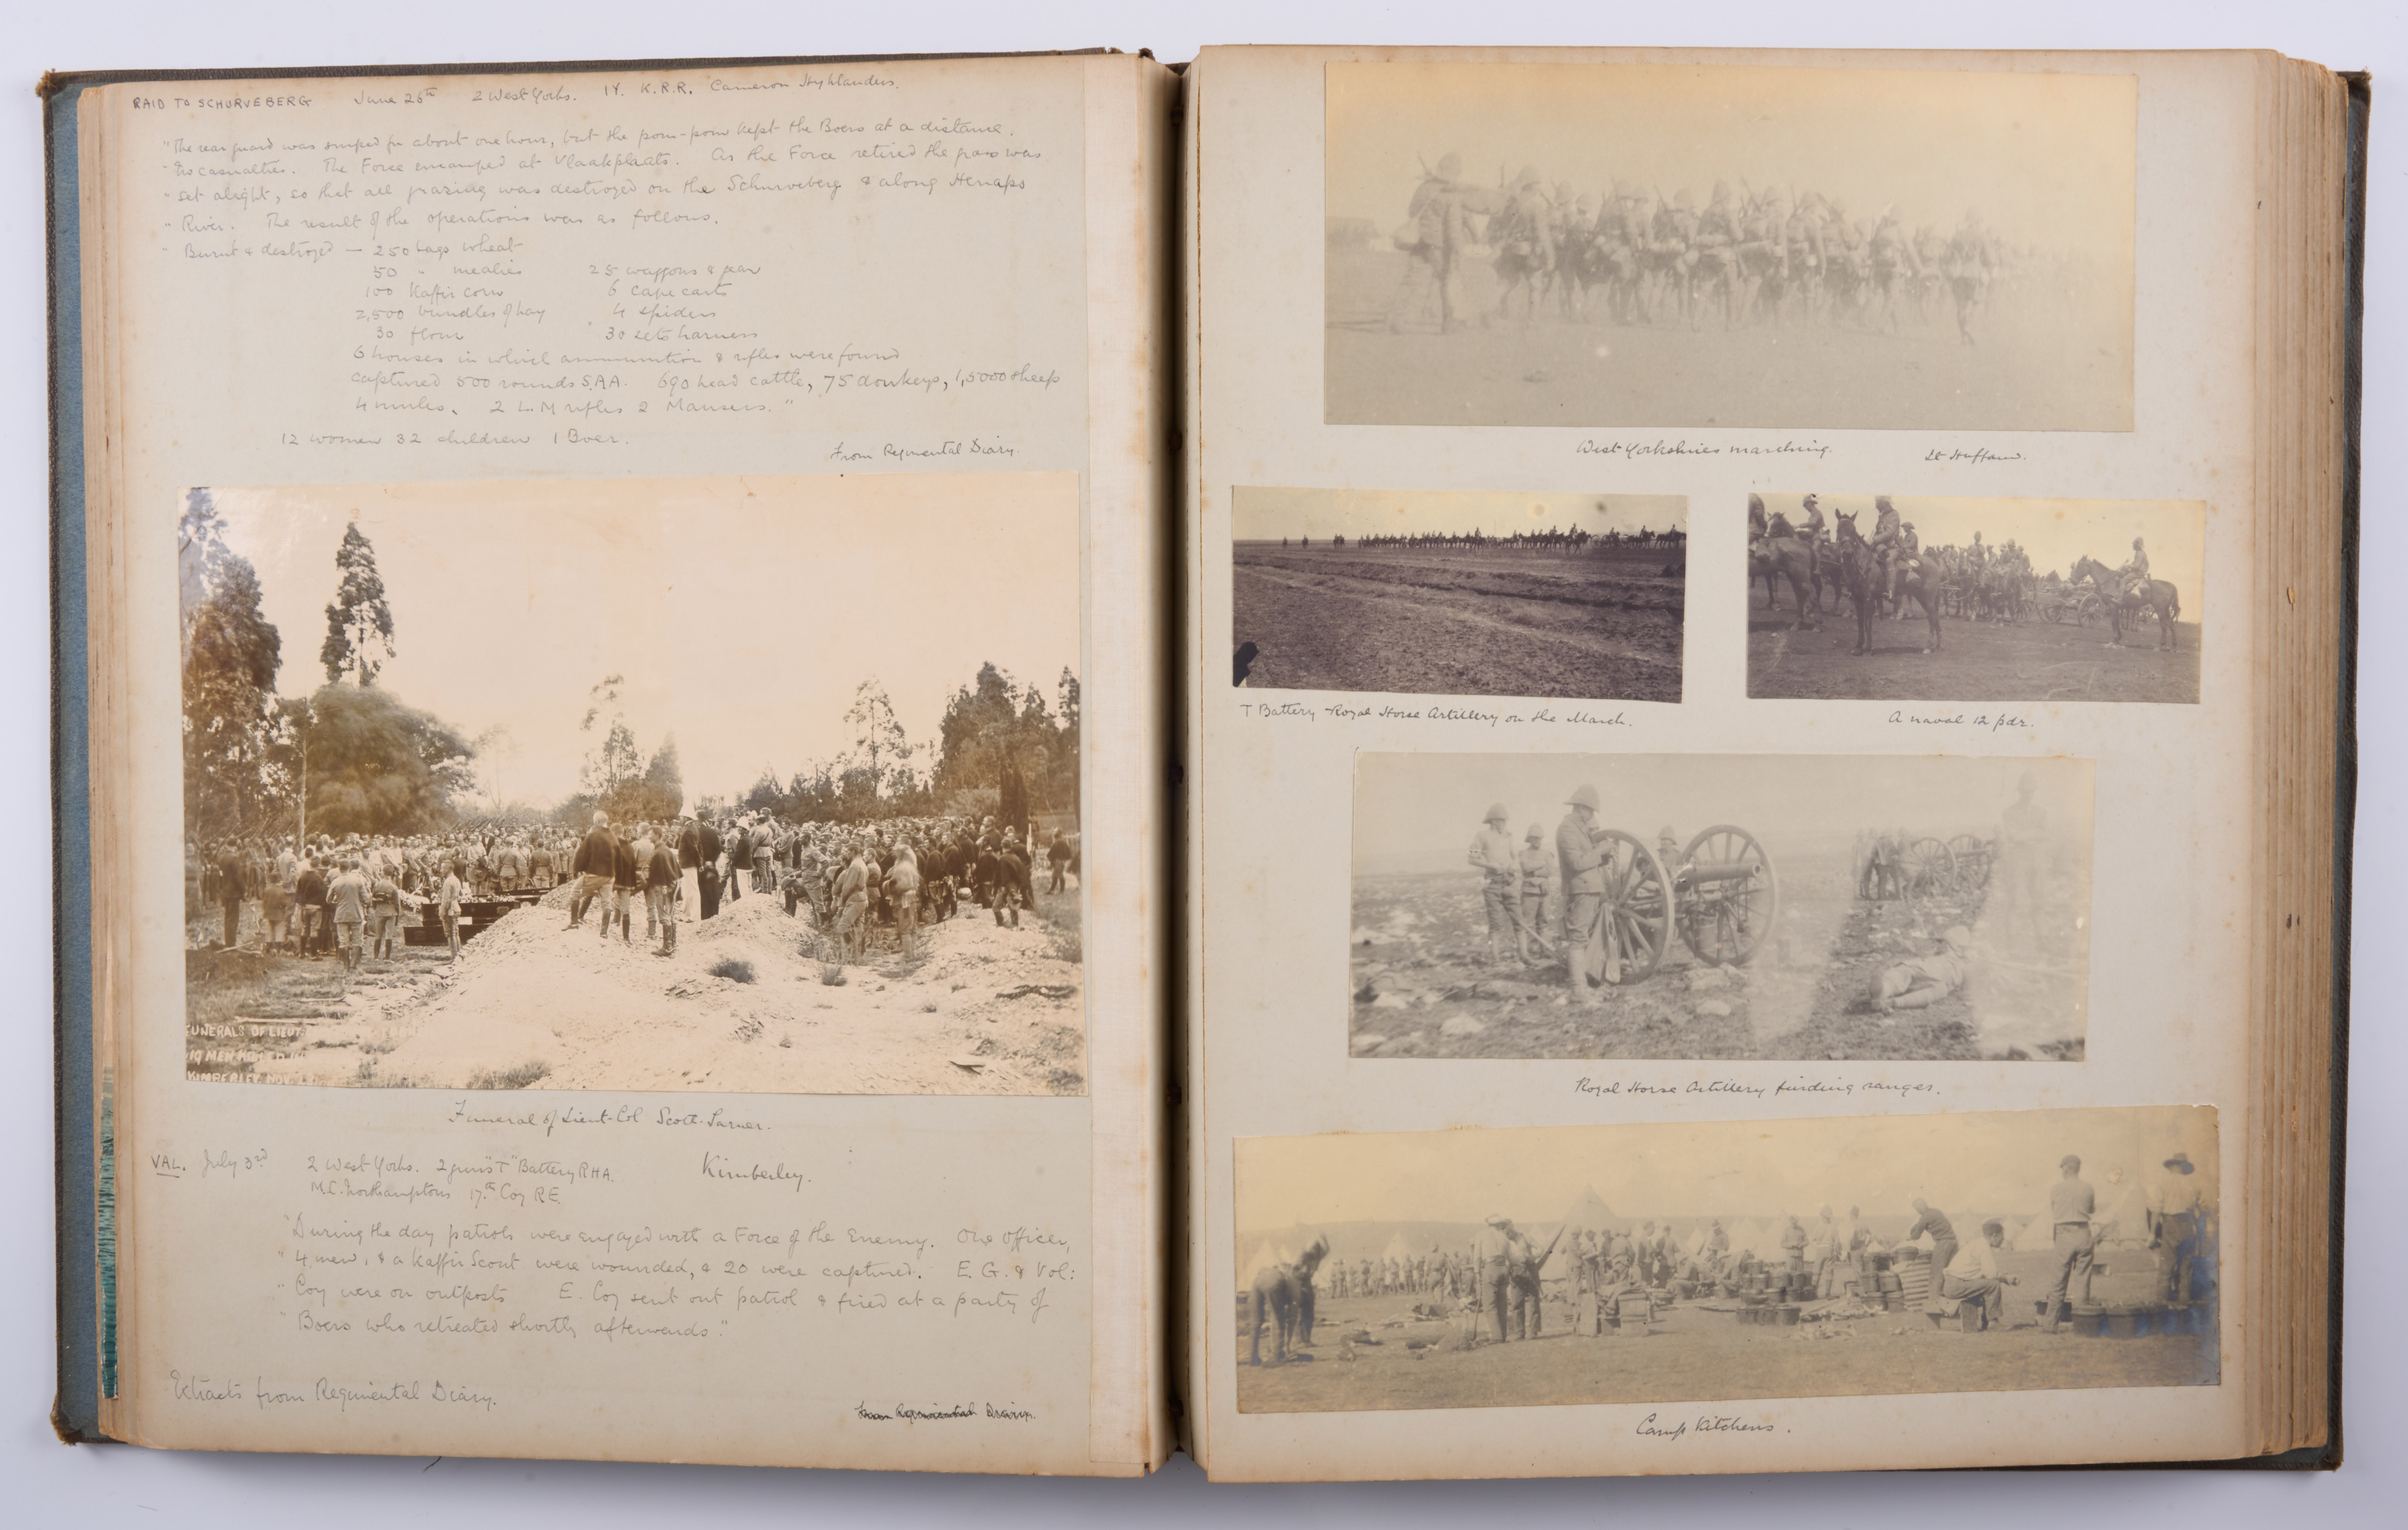 RAID TO SCHURVEBERG June 26th 2 West Yorks. 1Y. K.R.R. Cameron Highlanders.
"The rear guard was sniped for about one hour, but the pom-pom kept the Boers at a distance.
" No casualties. The Force encamped at Vlaakplaats. As the Force retired the grass was
" set alight, so that all grazing was destroyed on the Schurveberg & along Henaps
" River. The result of the operations was as follows.
" Burnt & destroyed — 250 bags wheat
50 " mealies 25 waggons & gear
100 Kaffir corn 6 cape carts
2,500 bundles of hay 4 spiders
30 flour 30 sets harness
6 houses in which ammunition & rifles were found
captured 500 rounds S.A.A. 690 head cattle, 75 donkeys, 1,5000 sheep
4 mules. 2 L.M rifles 2 Mausers."
12 women 32 children 1 Boer.
From Regimental Diary.
FUNERALS OF LIEUT.
19 MEN KILLED IN
KIMBERLEY NOV.
Funeral of Lieut-Col Scott-Turner.
Kimberley.
VAL. July 3rd 2 West Yorks. 2 guns "T" Battery RHA.
M.I. Northamptons 17th Coy R.E.
"During the day patrols were engaged with a Force of the Enemy. One officer,
" 4 men, & a Kaffir Scout were wounded, & 20 were captured. E. G. & Vol:
" Coy were on outposts E. Coy sent out patrol & fired at a party of
" Boers who retreated shortly afterwards."
Extracts from Regimental Diary.
From Regimental Diary.
West Yorkshires marching. Lt
T Battery Royal Horse Artillery on the March.
A naval 12 pdr.
Royal Horse Artillery finding ranges.
Camp Kitchens.